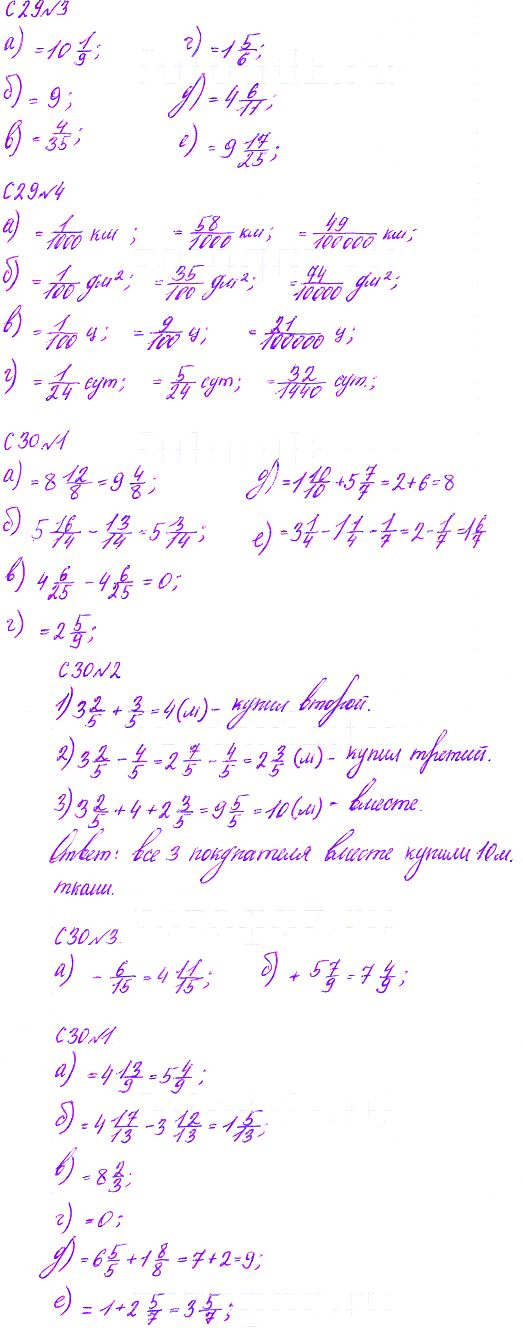 С29№3
а) = 10 1/9; г) = 1 5/6;
б) = 9; д) = 4 6/11;
в) = 4/35; е) = 9 17/25;
С29№4
а) = 1/1000 км; = 58/1000 км; = 49/100000 км;
б) = 1/100 дм²; = 35/100 дм²; = 74/10000 дм²;
в) = 1/100 ц; = 9/100 ц; = 21/100000 ц;
г) = 1/24 сут; = 5/24 сут; = 32/1440 сут.;
С30№1
а) = 8 12/8 = 9 4/8; д) = 1 10/10 + 5 7/7 = 2 + 6 = 8
б) 5 16/14 - 13/14 = 5 3/14; е) = 3 1/4 - 1 1/4 - 1/7 = 2 - 1/7 = 1 6/7
в) 4 6/25 - 4 6/25 = 0;
г) = 2 5/9;
С30№2
1) 3 2/5 + 3/5 = 4 (м) - купил второй.
2) 3 2/5 - 4/5 = 2 7/5 - 4/5 = 2 3/5 (м) - купил третий.
3) 3 2/5 + 4 + 2 3/5 = 9 5/5 = 10 (м) - вместе.
Ответ: все 3 покупателя вместе купили 10 м.
ткани.
С30№3.
а) - 6/15 = 4 11/15; б) + 5 7/9 = 7 4/9;
С30№1
а) = 4 13/9 = 5 4/9;
б) = 4 17/13 - 3 12/13 = 1 5/13;
в) = 8 2/3;
г) = 0;
д) = 6 5/5 + 1 8/8 = 7 + 2 = 9;
е) = 1 + 2 5/7 = 3 5/7;